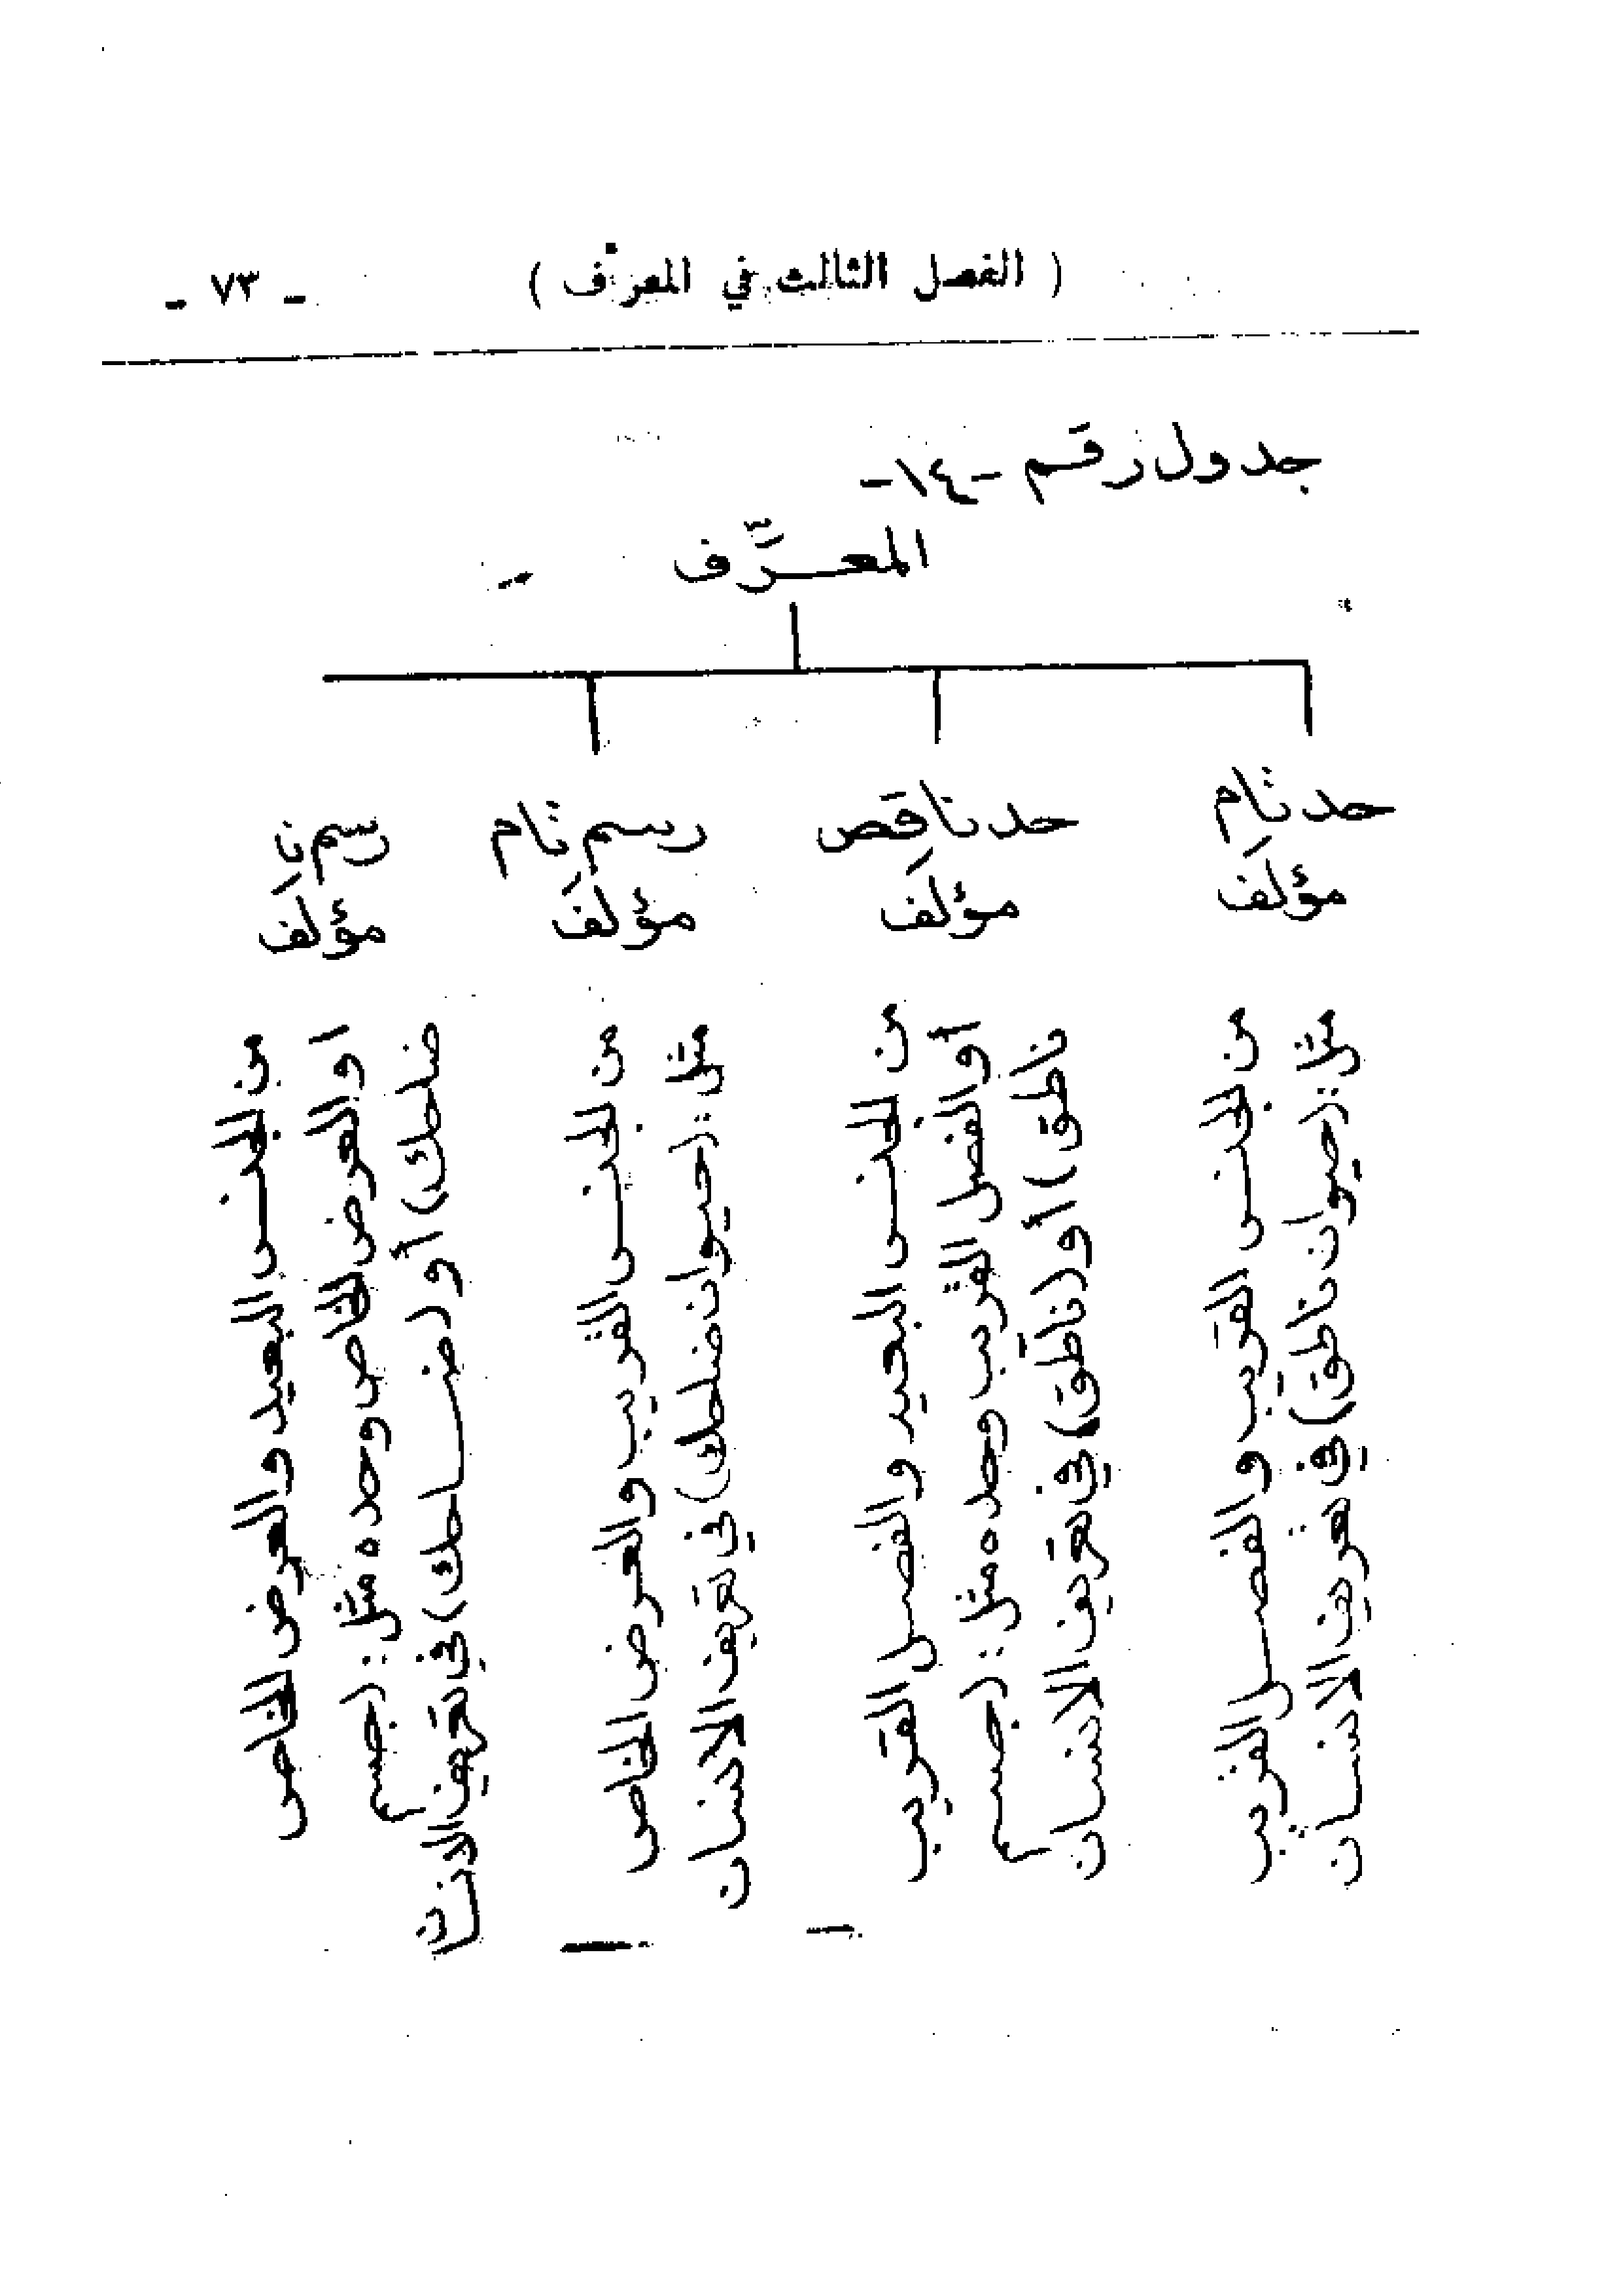 ( الفصل الثالث في المعرّف ) - ٧٣ -
جدول رقم -١٤-
المعرَّف
حد تام
مؤلف
من الجنس القريب والفصل القريب
مثل: (حيوان ناطق) في تعريف الانسان
حد ناقص
مؤلف
من الجنس البعيد والفصل القريب
أو الفصل القريب وحده مثل: (جسم
ناطق) أو (ناطق) في تعريف الانسان
رسم تام
مؤلف
من الجنس القريب والعرض الخاص
مثل: (حيوان ضاحك) في تعريف الانسان
رسم نا
مؤلف
من الجنس البعيد والعرض الخاص
او العرض الخاص وحده مثل: (جسم
ضاحك) أو (ضاحك) في تعريف الانسان